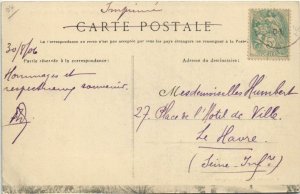 Imprimé
CARTE POSTALE
La correspondance au recto n'est pas acceptée par tous les pays étrangers, se renseigner à la Poste
Partie réservée à la correspondance.
Adresse du destinataire.
30/8/06
Hommages et
respectueux souvenir.
Mesdemoiselles Humbert
27 Place de l'Hotel de Ville.
Le Havre
(Seine-Infre)